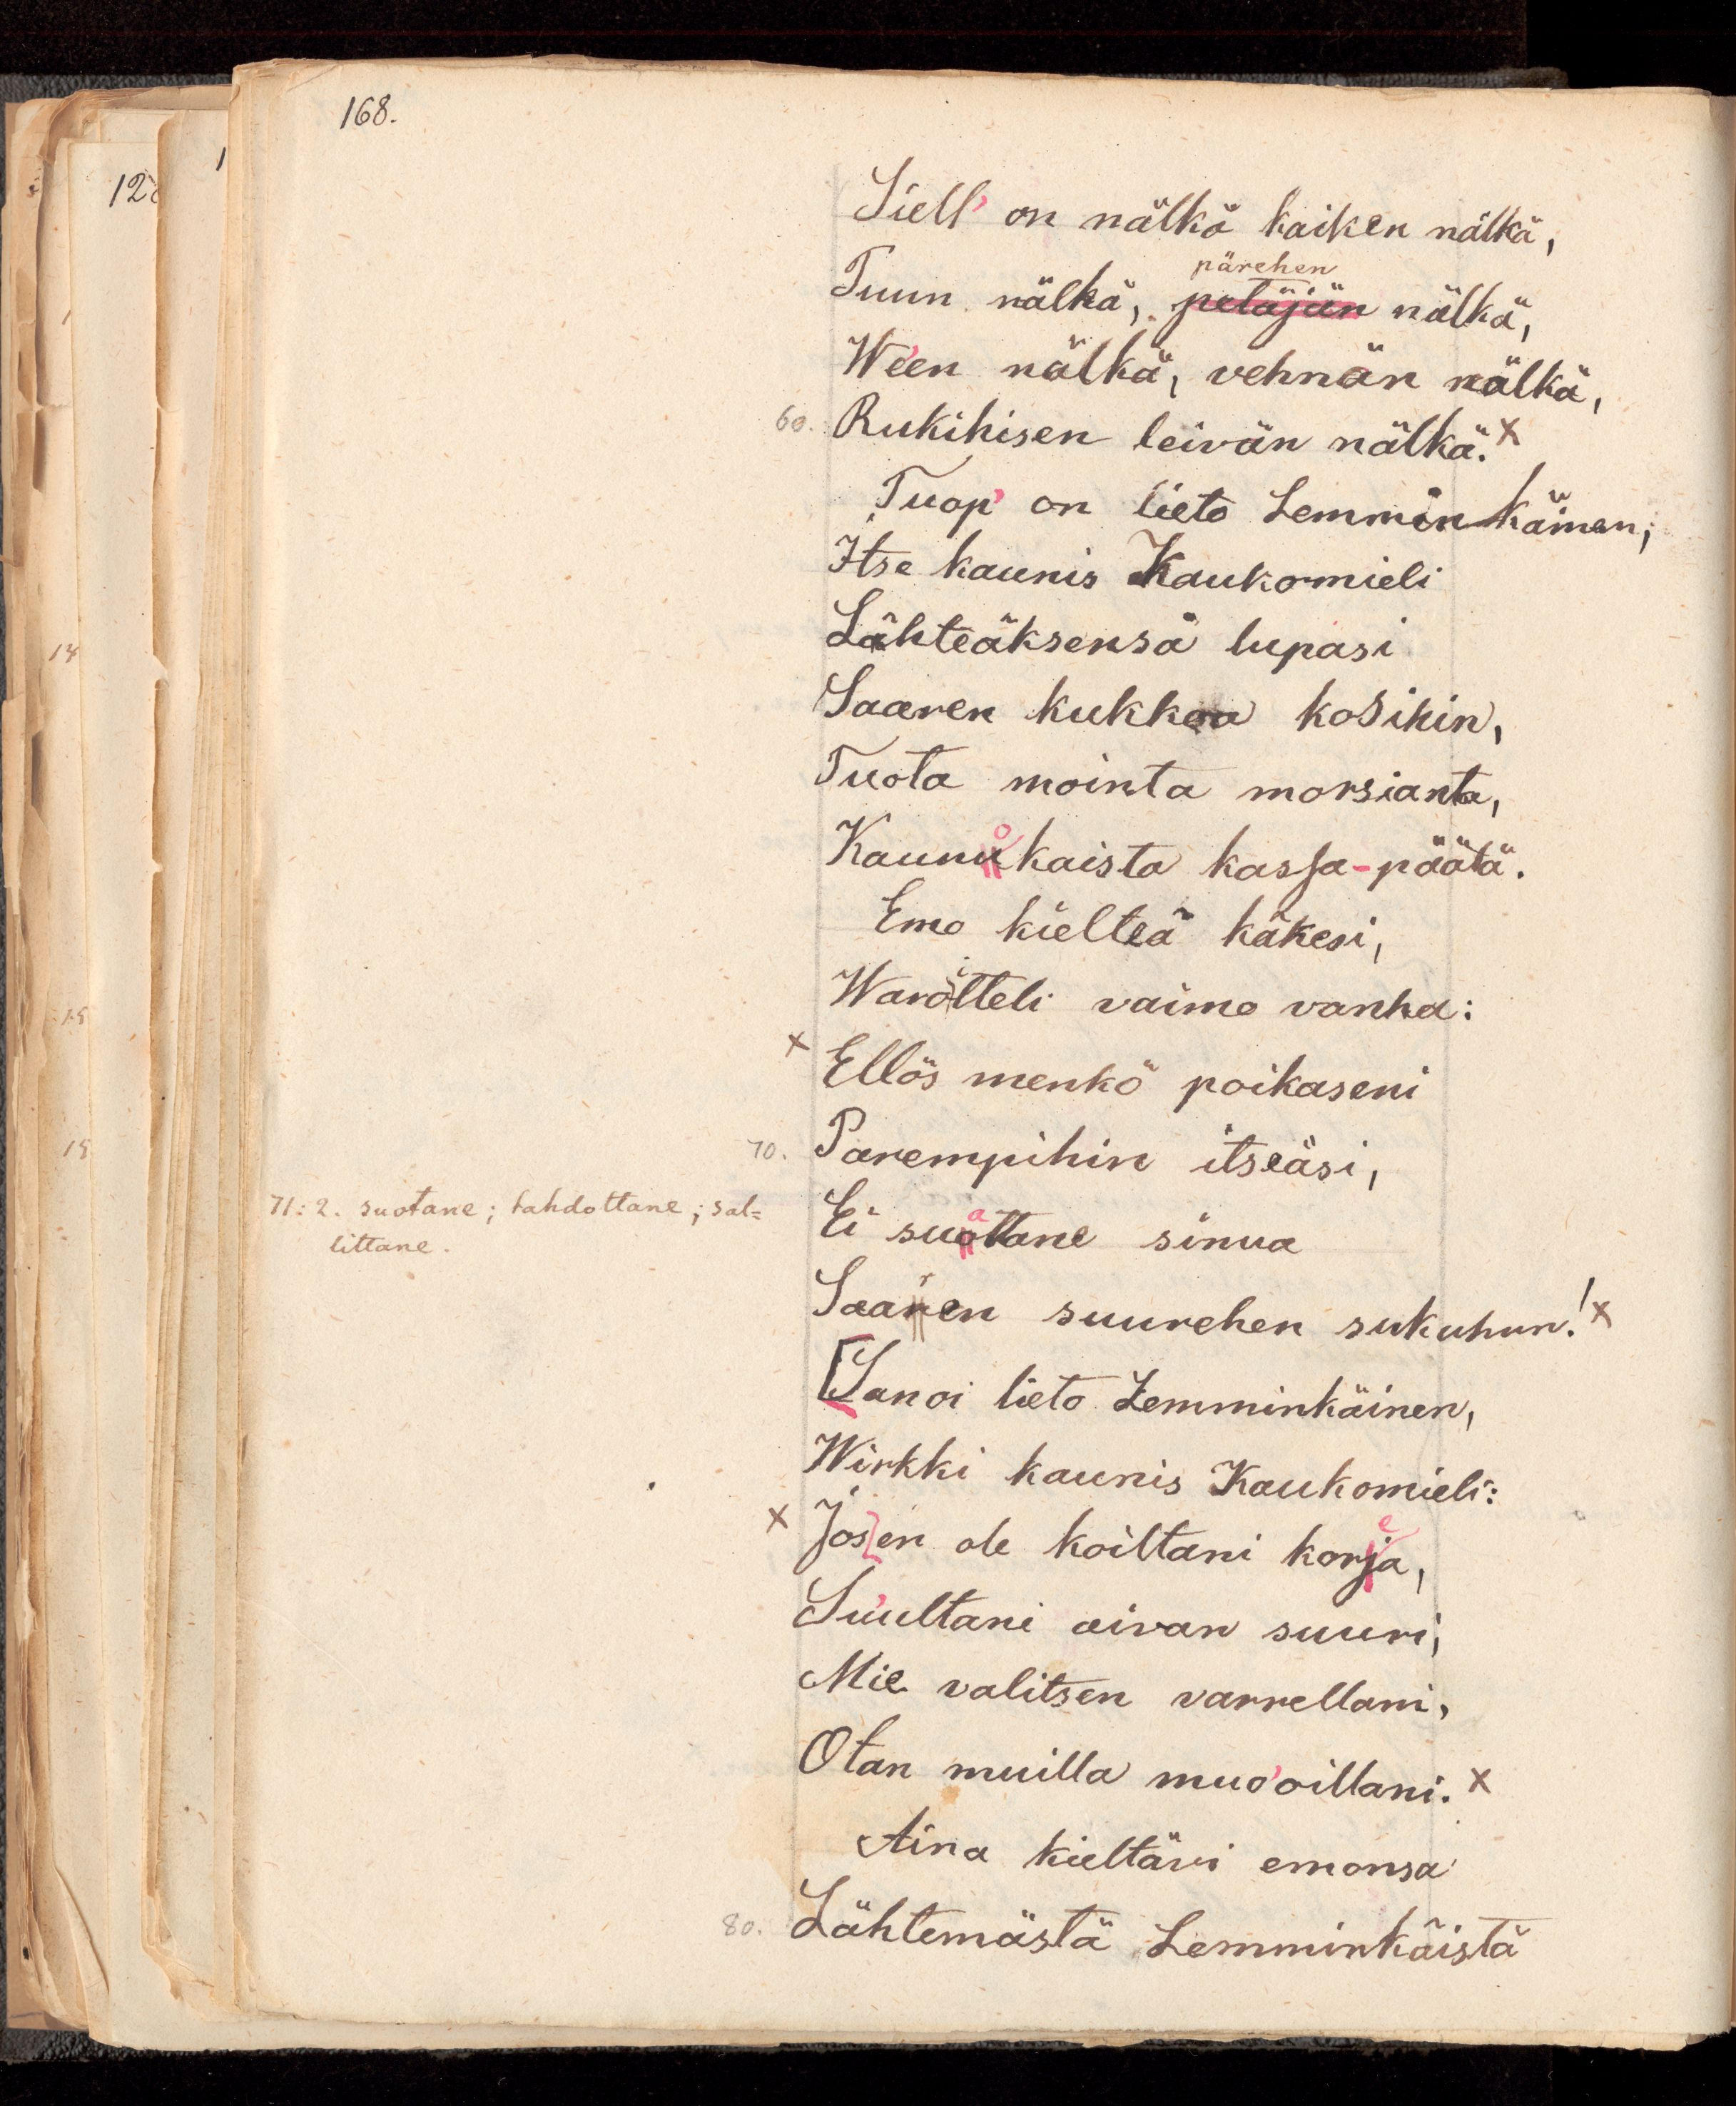 168.
128
Siell' on nälkä kaiken nälkä,
pärehen
Tuun nälkä, petäjän nälkä,
We'en nälkä, vehnän nälkä,
60. Rukihisen leivän nälkä. x
Tuop' on lieto Lemminkäinen,
Itse kaunis Kaukomieli
Lähteäksensä lupasi
Saaren kukkoa kosihin,
Tuota mointa morsianta,
o
Kaunukaista kassa-päätä.
Emo kielteä käkesi,
Warotteli vaimo vanha:
x Ellös menkö poikaseni
70. Parempihin itseäsi,
71:2. suotane; tahdottane; sal=
littane.
a
Ei suottane sinua
r
Saaren suurehen sukuhun! x
[Sanoi lieto Lemminkäinen,
Wirkki kaunis Kaukomieli:
e
x Jos en ole koiltani korja,
Su'ultani aivan suuri,
Mie valitsen varrellani,
Otan muilla muo'oillani. x
Aina kieltävi emonsa
80. Lähtemästä Lemminkäistä
14
15
15